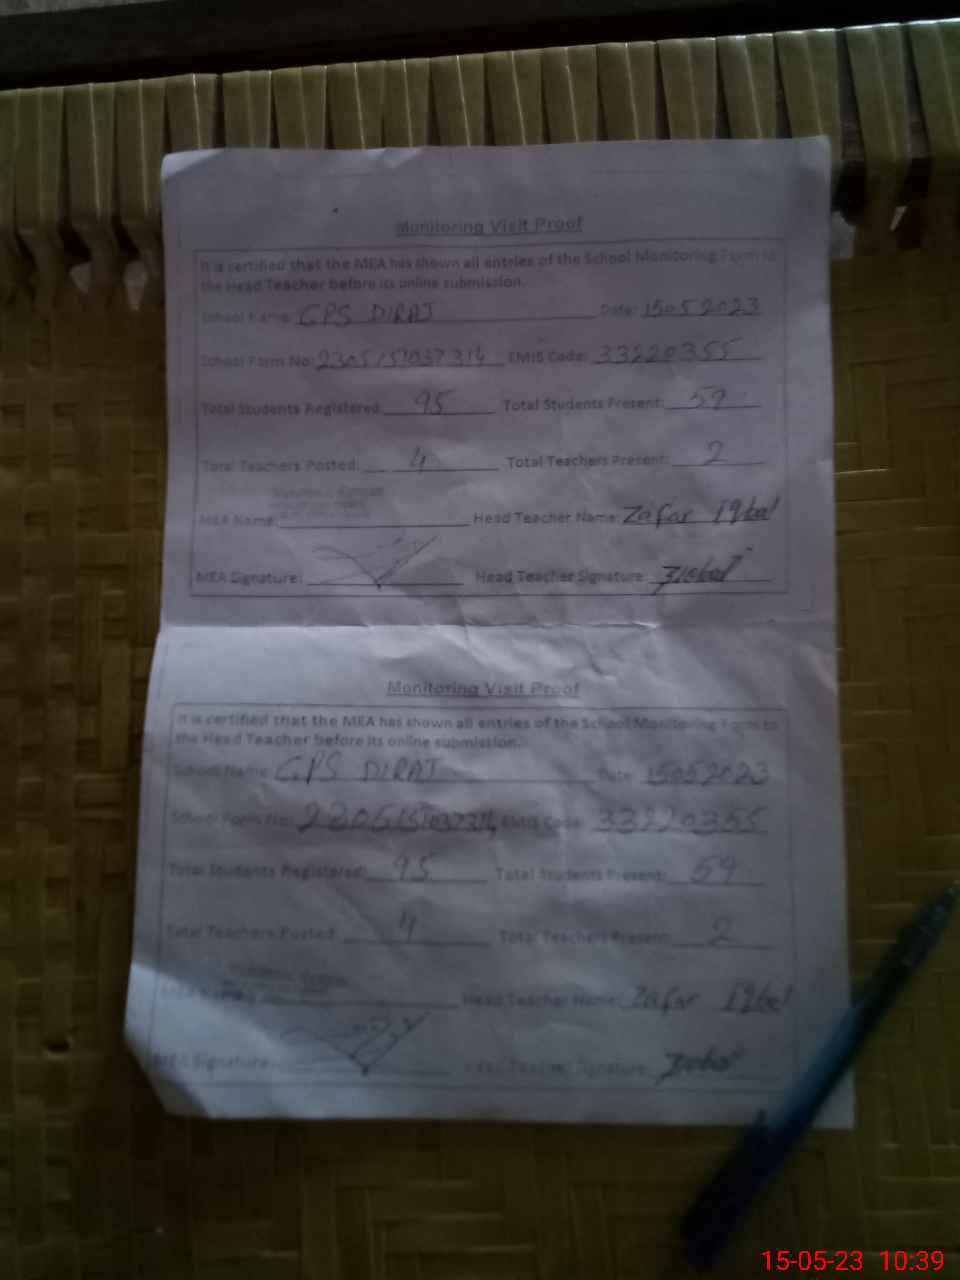 Monitoring Visit Proof
It is certified that the MEA has shown all entries of the School Monitoring Form to
the Head Teacher before its online submission.
School Name: GPS DIRAJ Date: 15052023
School Form No: 2305151037314 EMIS Code: 33220355
Total Students Registered: 95 Total Students Present: 59
Total Teachers Posted: 4 Total Teachers Present: 2
MEA Name: Head Teacher Name: Zafar Iqbal
MEA Signature: Head Teacher Signature: Iqbal
Monitoring Visit Proof
It is certified that the MEA has shown all entries of the School Monitoring Form to
the Head Teacher before its online submission.
School Name: GPS DIRAJ Date: 15052023
School Form No: 2305151037314 EMIS Code: 33220355
Total Students Registered: 95 Total Students Present: 59
Total Teachers Posted: 4 Total Teachers Present: 2
MEA Name: Head Teacher Name: Zafar Iqbal
MEA Signature: Head Teacher Signature: Iqbal
15-05-23 10:39